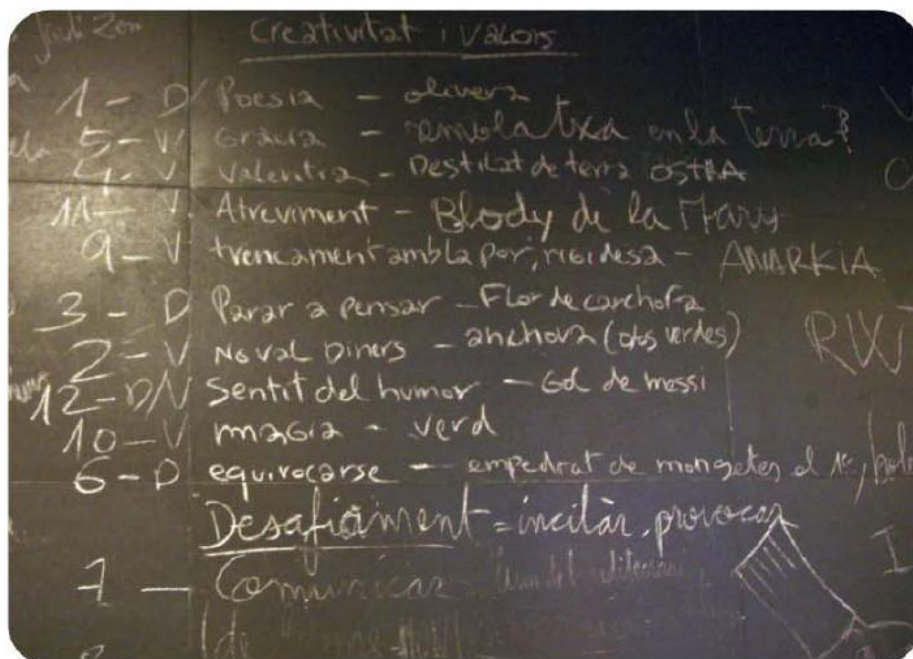 Creativitat i valors
1 - D/ Poesia - olivera
5 - V Gràcia - remolatxa en la terra?
4 - V Valentia - Destilat de terra OSTRA
11 - V Atreviment - Blody de la Mary
9 - V trencament amb la por, rigidesa - ANARKIA
3 - D Parar a pensar - Flor de carchofa
2 - V No val Diners - anchova (ojos verdes)
RW
12 - D/V Sentit del humor - Gol de messi
10 - V magia - verd
6 - D equivocarse - empedrat de mongetes el
Desafiament = incitàr, provocar
7 - Comunicar
de